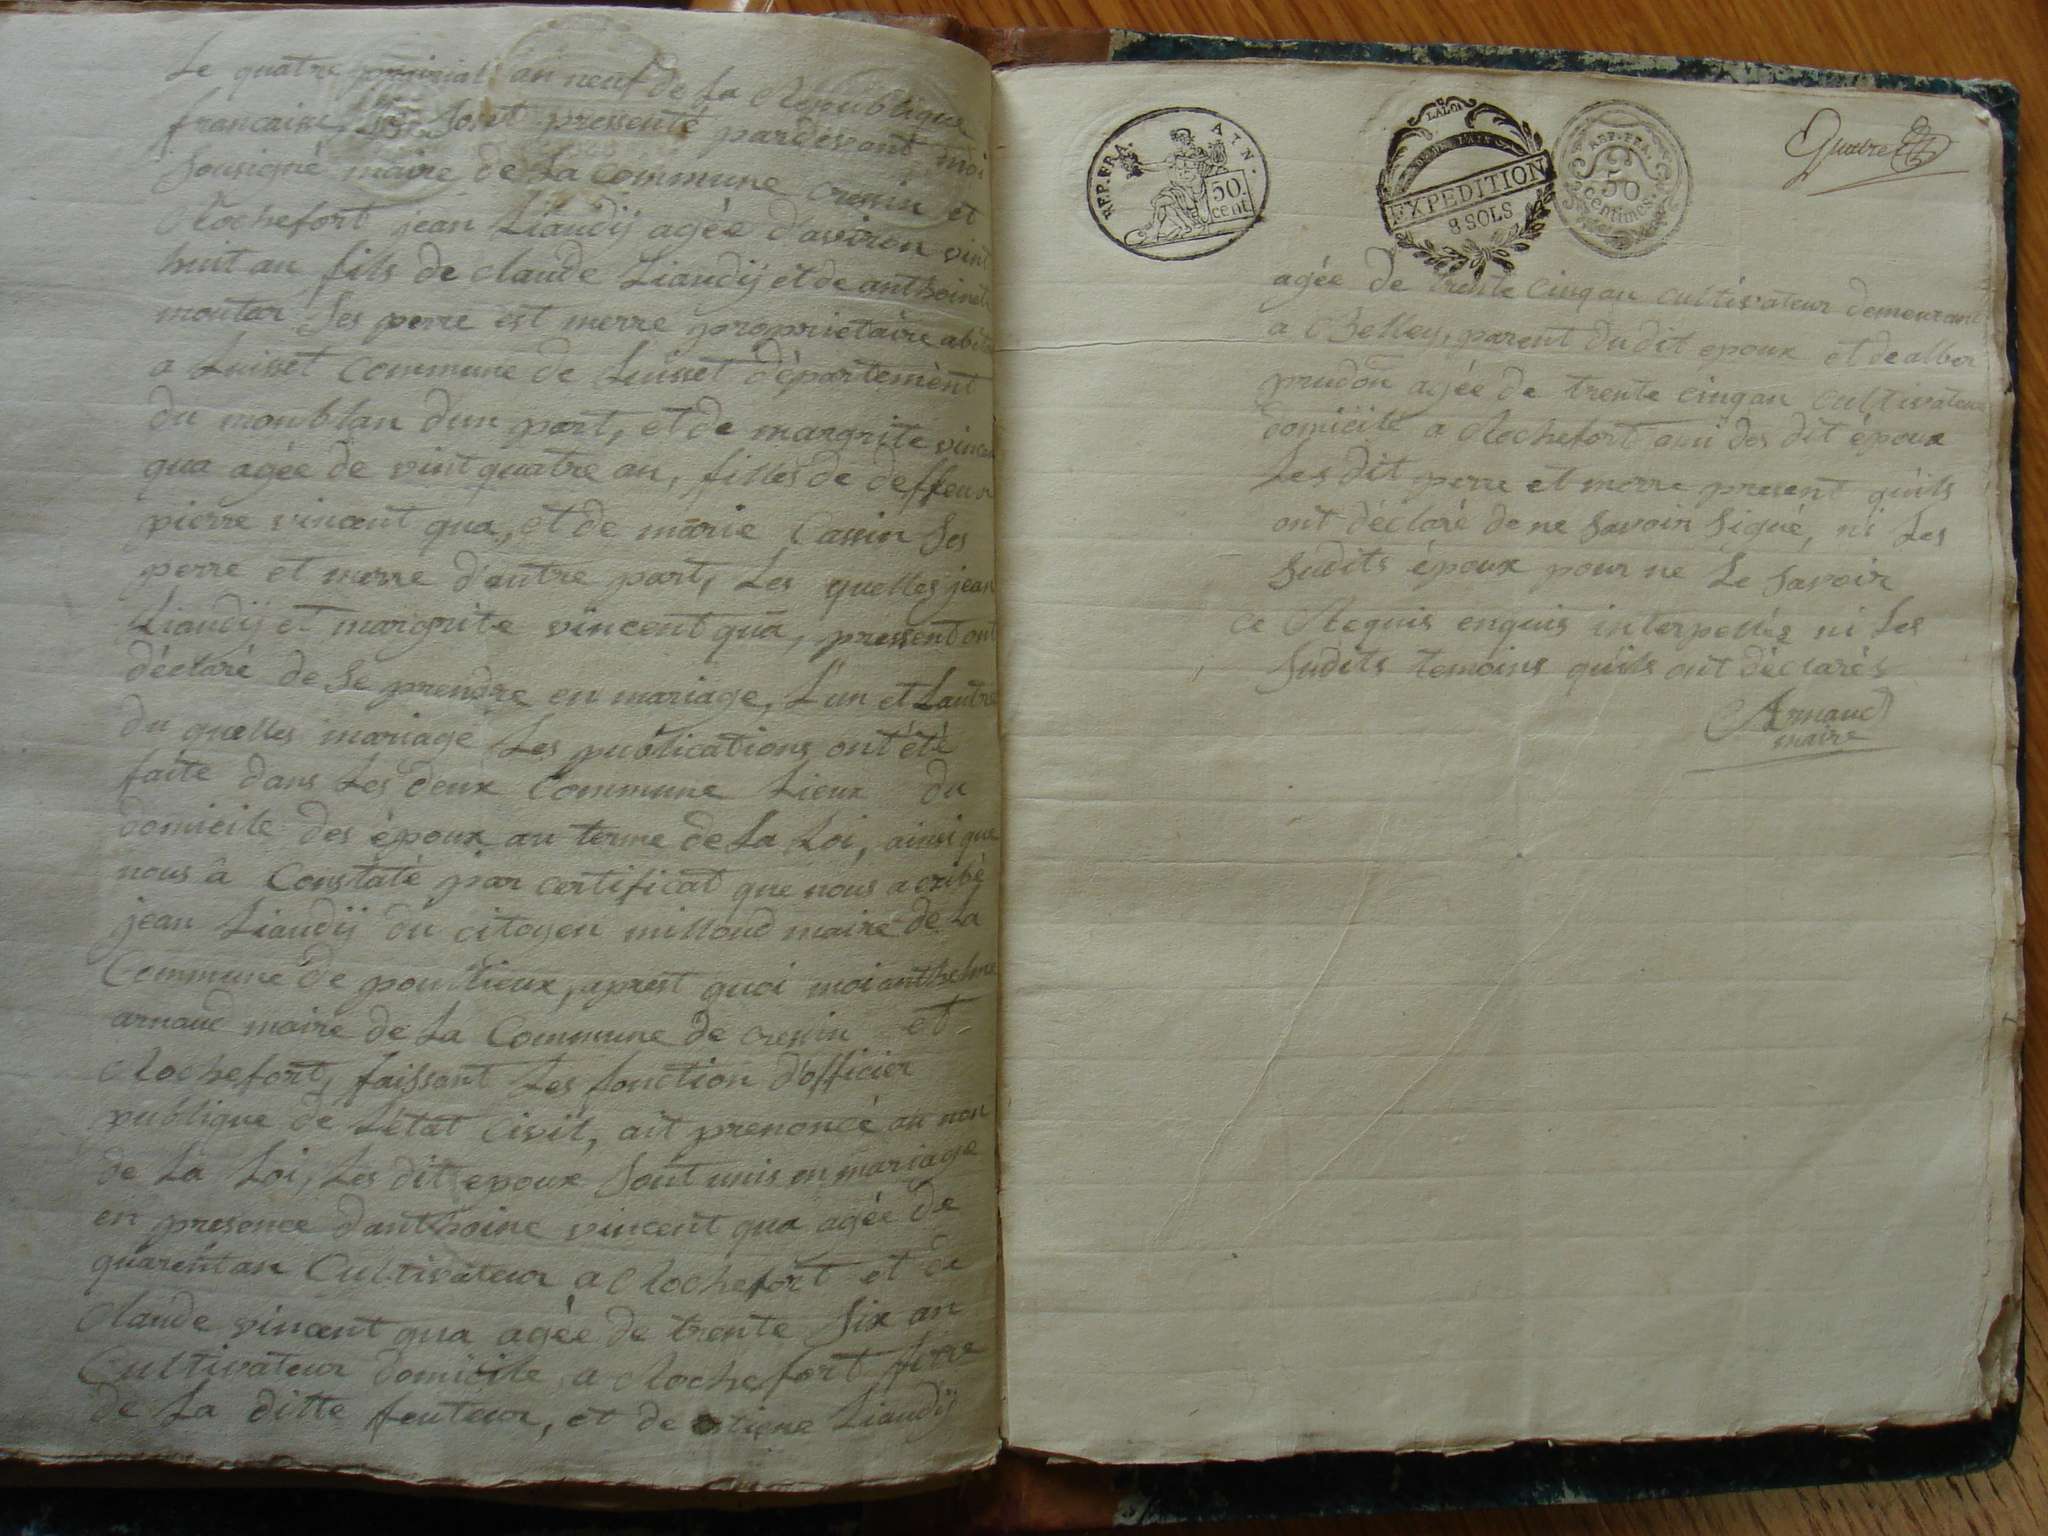 Le quatre prairial an neuf de la Republique
francaise, Se Sont pressenté pardevant moi
Sousigné maire de La Commune cressin et
Rochefort jean Liaudij agée d'aviron vint
huit an fils de claude Liaudij et de anthoinete
moutar Ses perre est merre proprietaire abitan
a Luisset commune de Luisset département
du monblan d'un part, et de margrite vincen
qua agée de vint quatre an, filles de deffeun
pierre vincent qua, et de marie Cassin Ses
perre et merre d'autre part, Les quelles jean
Liaudij et margrite vincent qua, pressent ont
déclaré de Se prendre en mariage, L'un et Lautre
du quelles mariage Les publications ont été
faite dans Les deux Commune Lieux du
domicile des époux au terme de La Loi, ainsi que
nous à Constaté par certificat que nous a exibé
jean Liaudij du citoyen milloud maire de La
Commune de pourlieux, aprest quoi moi anthelme
arnaud maire de La Commune de cressin et
Rochefort, faissant Les fonction d'officier
publique de L'état Civil, ait prenoncé au non
de La Loi, Les dit epoux Sont unis en mariage
en presence d'anthoine vincent qua agée de
quarentan Cultivateur a Rochefort et de
Claude vincent qua agée de trente Six an
Cultivateur domicile a Rochefort frere
de La ditte feuteur, et de etiene Liaudij
REP. FRA. AIN.
50. cent.
LA LOI
EXPEDITION
8 SOLS
REP. FRA.
50
Centimes
Quatre
agée de trente cinq an cultivateur demeurant
a Belley, parent dudit epoux et de alber
prudon agée de trente cinq an cultivateur
domicile a Rochefort ami des dit époux
Les dit perre et merre present qu'ils
ont déclaré de ne Savoir Signé, ni Les
Sudits époux pour ne Le Savoir
ce Requis enquis interpellés ni Les
Sudits temoins qu'ils ont déclarés
Arnaud
maire